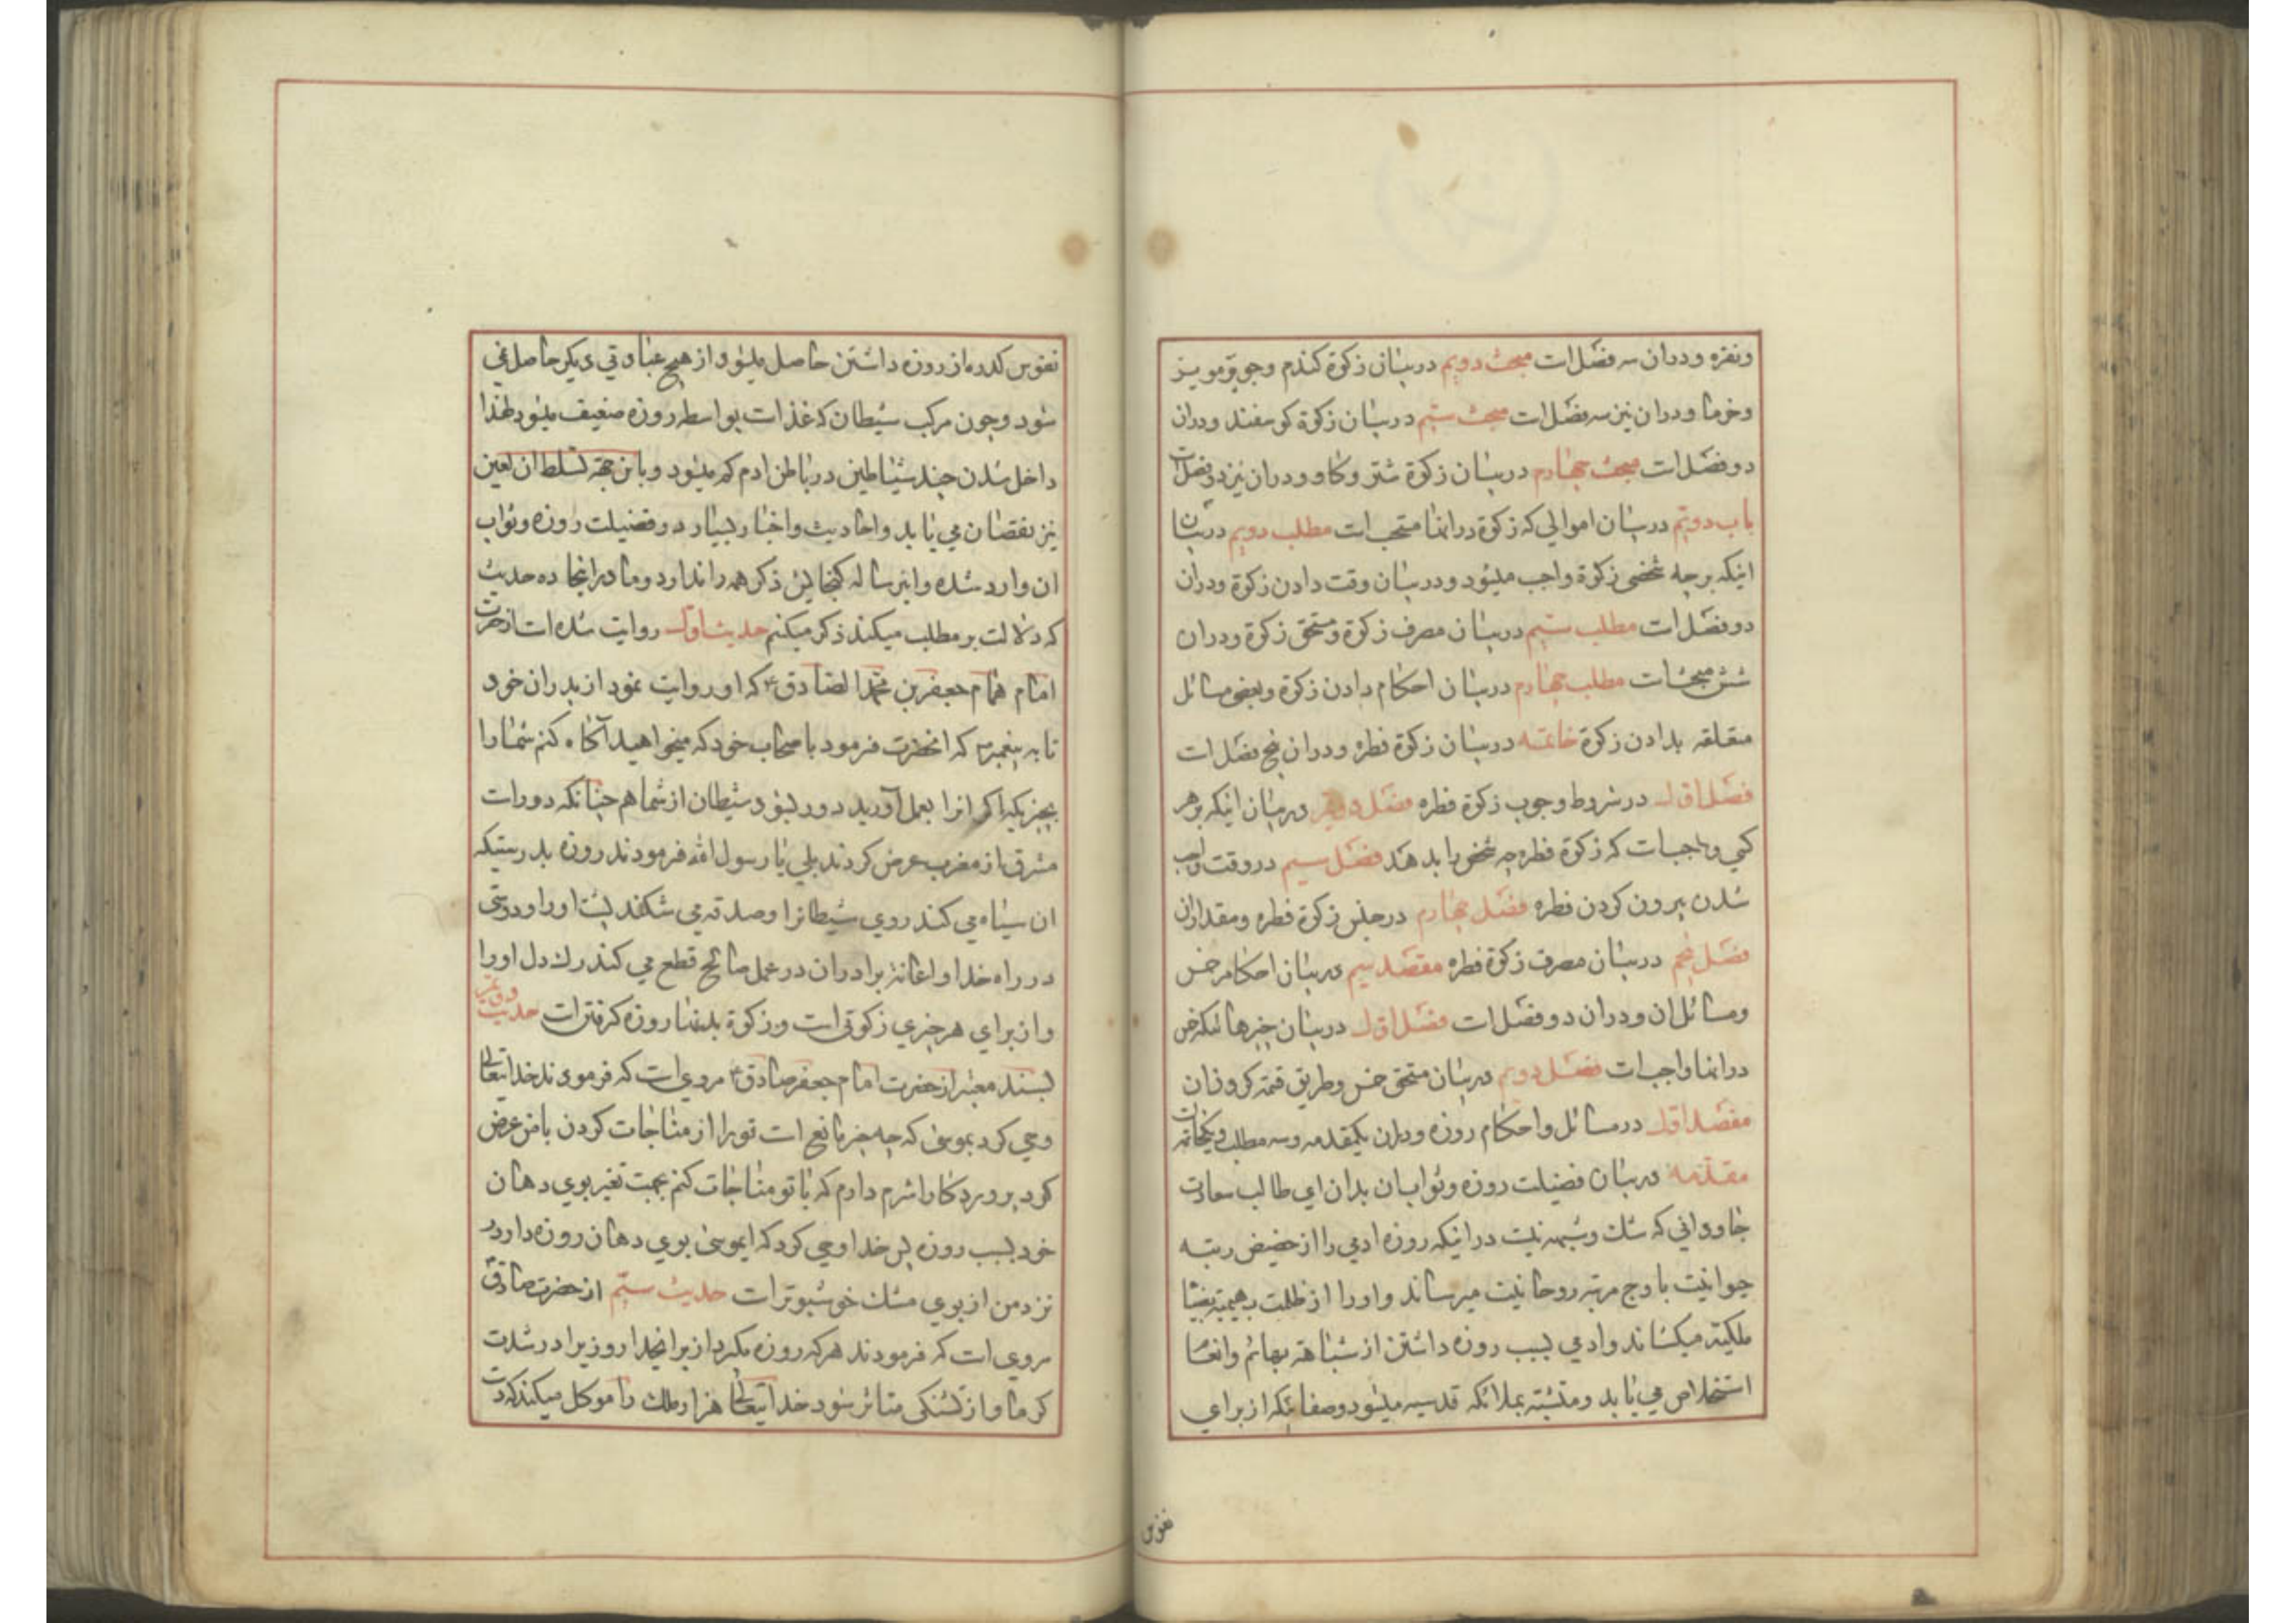 ونقره ودران سه فصل است مبحث دویم دربیان زکوة کندم وجو ومویز
وخرما ودران نیز سه فصل است مبحث سیم دربیان زکوة کوسفند ودران
دو فصل است مبحث چهارم دربیان زکوة شتر وکاو ودران نیز دو فصل است
باب دویم دربیان اموالی که زکوة درانها مستحب است مطلب دویم دربیان
اینکه برچه شخصی زکوة واجب میشود ودربیان وقت دادن زکوة ودران
دو فصل است مطلب سیم دربیان مصرف زکوة ومستحق زکوة ودران
شش مبحث است مطلب چهارم دربیان احکام دادن زکوة وبعضی مسائل
متعلقه بدادن زکوة خاتمه دربیان زکوة فطره ودران پنج فصل است
فصل اول در شروط وجوب زکوة فطره فصل دویم دربیان اینکه برهر
کسی واجب است که زکوة فطره چه شخص را بدهند فصل سیم در وقت واجب
شدن بیرون کردن فطره فصل چهارم درجنس زکوة فطره ومقداران
فصل پنجم دربیان مصرف زکوة فطره مقصد سیم دربیان احکام خمس
ومسائل ان ودران دو فصل است فصل اول دربیان چیزهائیکه خمس
درانها واجب است فصل دویم دربیان مستحق خمس وطریق قسمة کردن ان
مقصد اول در مسائل واحکام روزه ودران یکمقدمه وسه مطلب ویکخاتمه است
مقدمه دربیان فضیلت روزه وثواب ان بدان ای طالب سعادت
جاودانی که شک وشبهه نیست دراینکه روزه ادمی را از حضیض رتبه
حیوانیت باوج مرتبه روحانیت میرساند واورا از ظلمت بهیمیة بضیا
ملکیة میکشاند وادمی بسبب روزه داشتن از شباهة بهائم وانعام
استخلاص می یابد ومتشبه بملائکه قدسیه میشود وصفائیکه از برای
نفوس
نفوس کدره از روزه داشتن حاصل میشود از هیچ عبادتی دیکر حاصل نمی
شود وچون مرکب شیطان که غذاست بواسطه روزه ضعیف میشود لهذا
داخل شدن جند شیاطین در باطن ادم کم میشود وباین جهة تسلط ان لعین
نیز نقصان می یابد واحادیث واخبار بسیار در فضیلت روزه وثواب
ان وارد شده واین رساله کنجایش ذکر همه را ندارد وما دراینجا ده حدیث
که دلالت بر مطلب میکند ذکر میکنم حدیث اول روایت شده است از حضرت
امام همام جعفر بن محمد الصادق ع که او روایت نمود از پدران خود
تا به پیغمبر ص که انحضرت فرمود باصحاب خود که میخواهید آکاه کنم شما را
بچیزیکه اکر انرا بعمل آورید دور شود شیطان از شما هم چنانکه دور است
مشرق از مغرب عرض کردند بلی یا رسول الله فرمودند روزه بدرستیکه
ان سیاه می کند روی شیطانرا وصدقه می شکند پشت اورا ودوستی
در راه خدا واعانة برادران در عمل صالح قطع می کند رک دل اورا
واز برای هر چیزی زکوتی است وزکوة بدنها روزه کرفتن است حدیث دویم
بسند معتبر از حضرت امام جعفر صادق ع مروی است که فرمودند خدایتعالی
وحی کرد بموسی که چه چیز مانع است تورا از مناجات کردن با من عرض
کرد پروردکارا شرم دارم که با تو مناجات کنم بجهت تغیر بوی دهان
خود بسبب روزه پس خدا وحی کرد که ایموسی بوی دهان روزه دار
نزد من از بوی مشک خوشبوتر است حدیث سیم از حضرت صادق
مروی است که فرمودند هرکه روزه بکیرد از برایخدا روزیرا در شدت
کرما واز تشنکی متاثر شود خدایتعالی هزار ملک را موکل میکند که دست